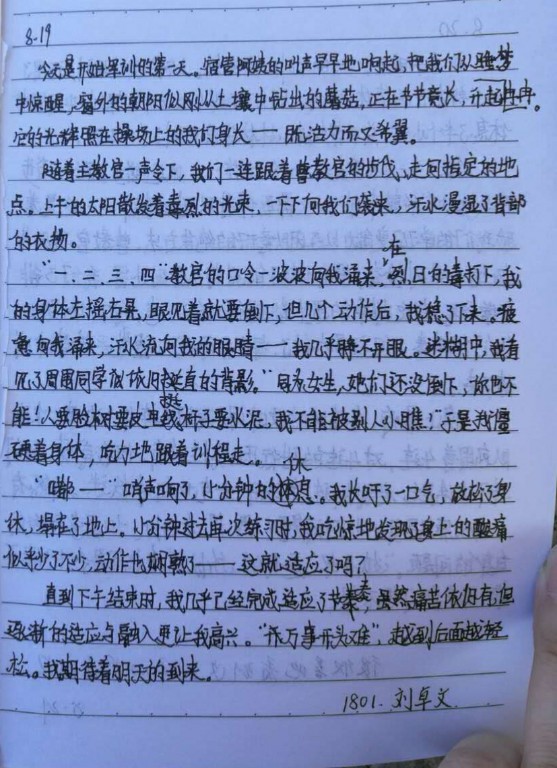 8.19
今天是开始军训的第一天。宿管阿姨的叫声早早地响起,把我们从睡梦
中惊醒,窗外的朝阳似刚从土壤中钻出的蘑菇,正在节节竟长,升起冉冉。
它的光辉照在操场上的我们身长——既活力而又希翼。
随着主教官一声令下,我们一连跟着曹教官的步伐、走向指定的地
点。上午的太阳散发着毒烈的光束,一下下向我们袭来,汗水漫湿了背部
的衣物。
"一、二、三、四"教官的口令一波波向我涌来,在烈日的毒打下,我
的身体左摇右晃,眼见着就要倒下,但几个动作后,我稳了下来。疲
惫向我涌来,汗水流向我的眼睛——我几乎睁不开眼。迷糊中,我看
见了周围同学们依旧挺直的背影。"身为女生,她们还没倒下,你也不
能!人要脸树要皮电线杆子要水泥,我不能被别人小瞧!"于是我僵
硬着身体,吃力地跟着训程走。
"嘟——"哨声响了,小分钟的休息。我长吁了一口气,放松了身
体,塌在了地上。小分钟过去再次练习时,我吃惊地发现了身上的酸痛
似乎少了不少,动作也娴熟了——这就适应了吗?
直到下午结束时,我几乎已经完成适应了节奏,虽然痛苦依仍有,但
逐渐的适应与融入更让我高兴。"万事开头难"越到后面越轻
松。我期待着明天的到来。
1801.刘卓文